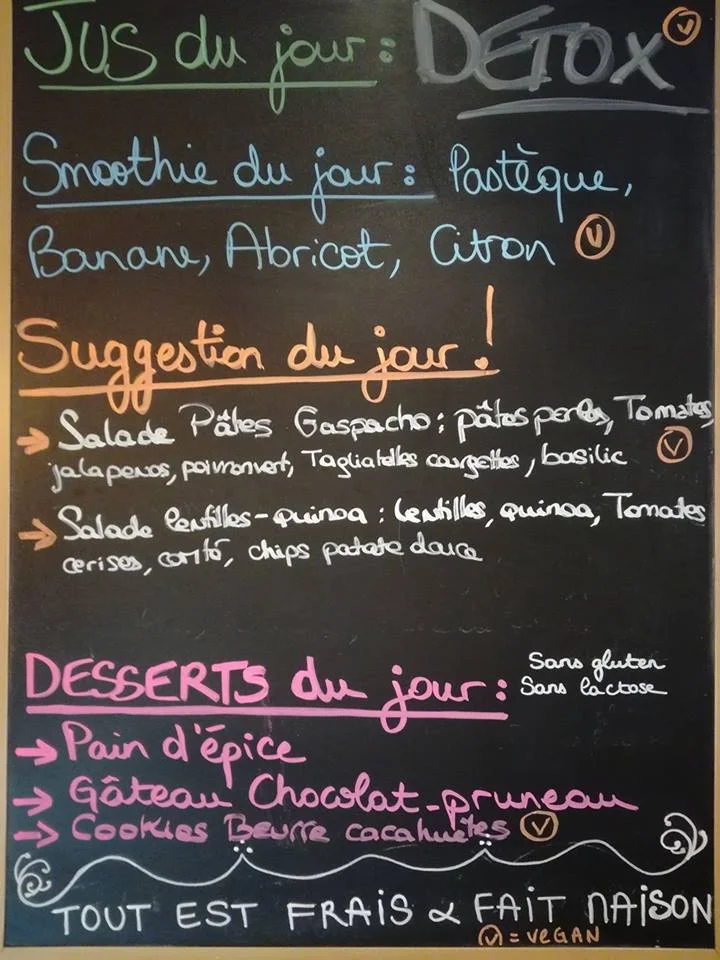 Jus du jour : DETOX V
Smoothie du jour : Pastèque,
Banane, Abricot, Citron V
Suggestion du jour !
→ Salade Pâtes Gaspacho : pâtes perles, Tomates,
jalapenos, poivronvert, Tagliatelles courgettes, basilic V
→ Salade lentilles-quinoa : lentilles, quinoa, Tomates
cerises, comté, chips patate douce
DESSERTS du jour :
Sans gluten
Sans lactose
→ Pain d'épice
→ Gâteau Chocolat-pruneau
→ Cookies Beurre cacahuètes V
TOUT EST FRAIS & FAIT MAISON
V = VEGAN